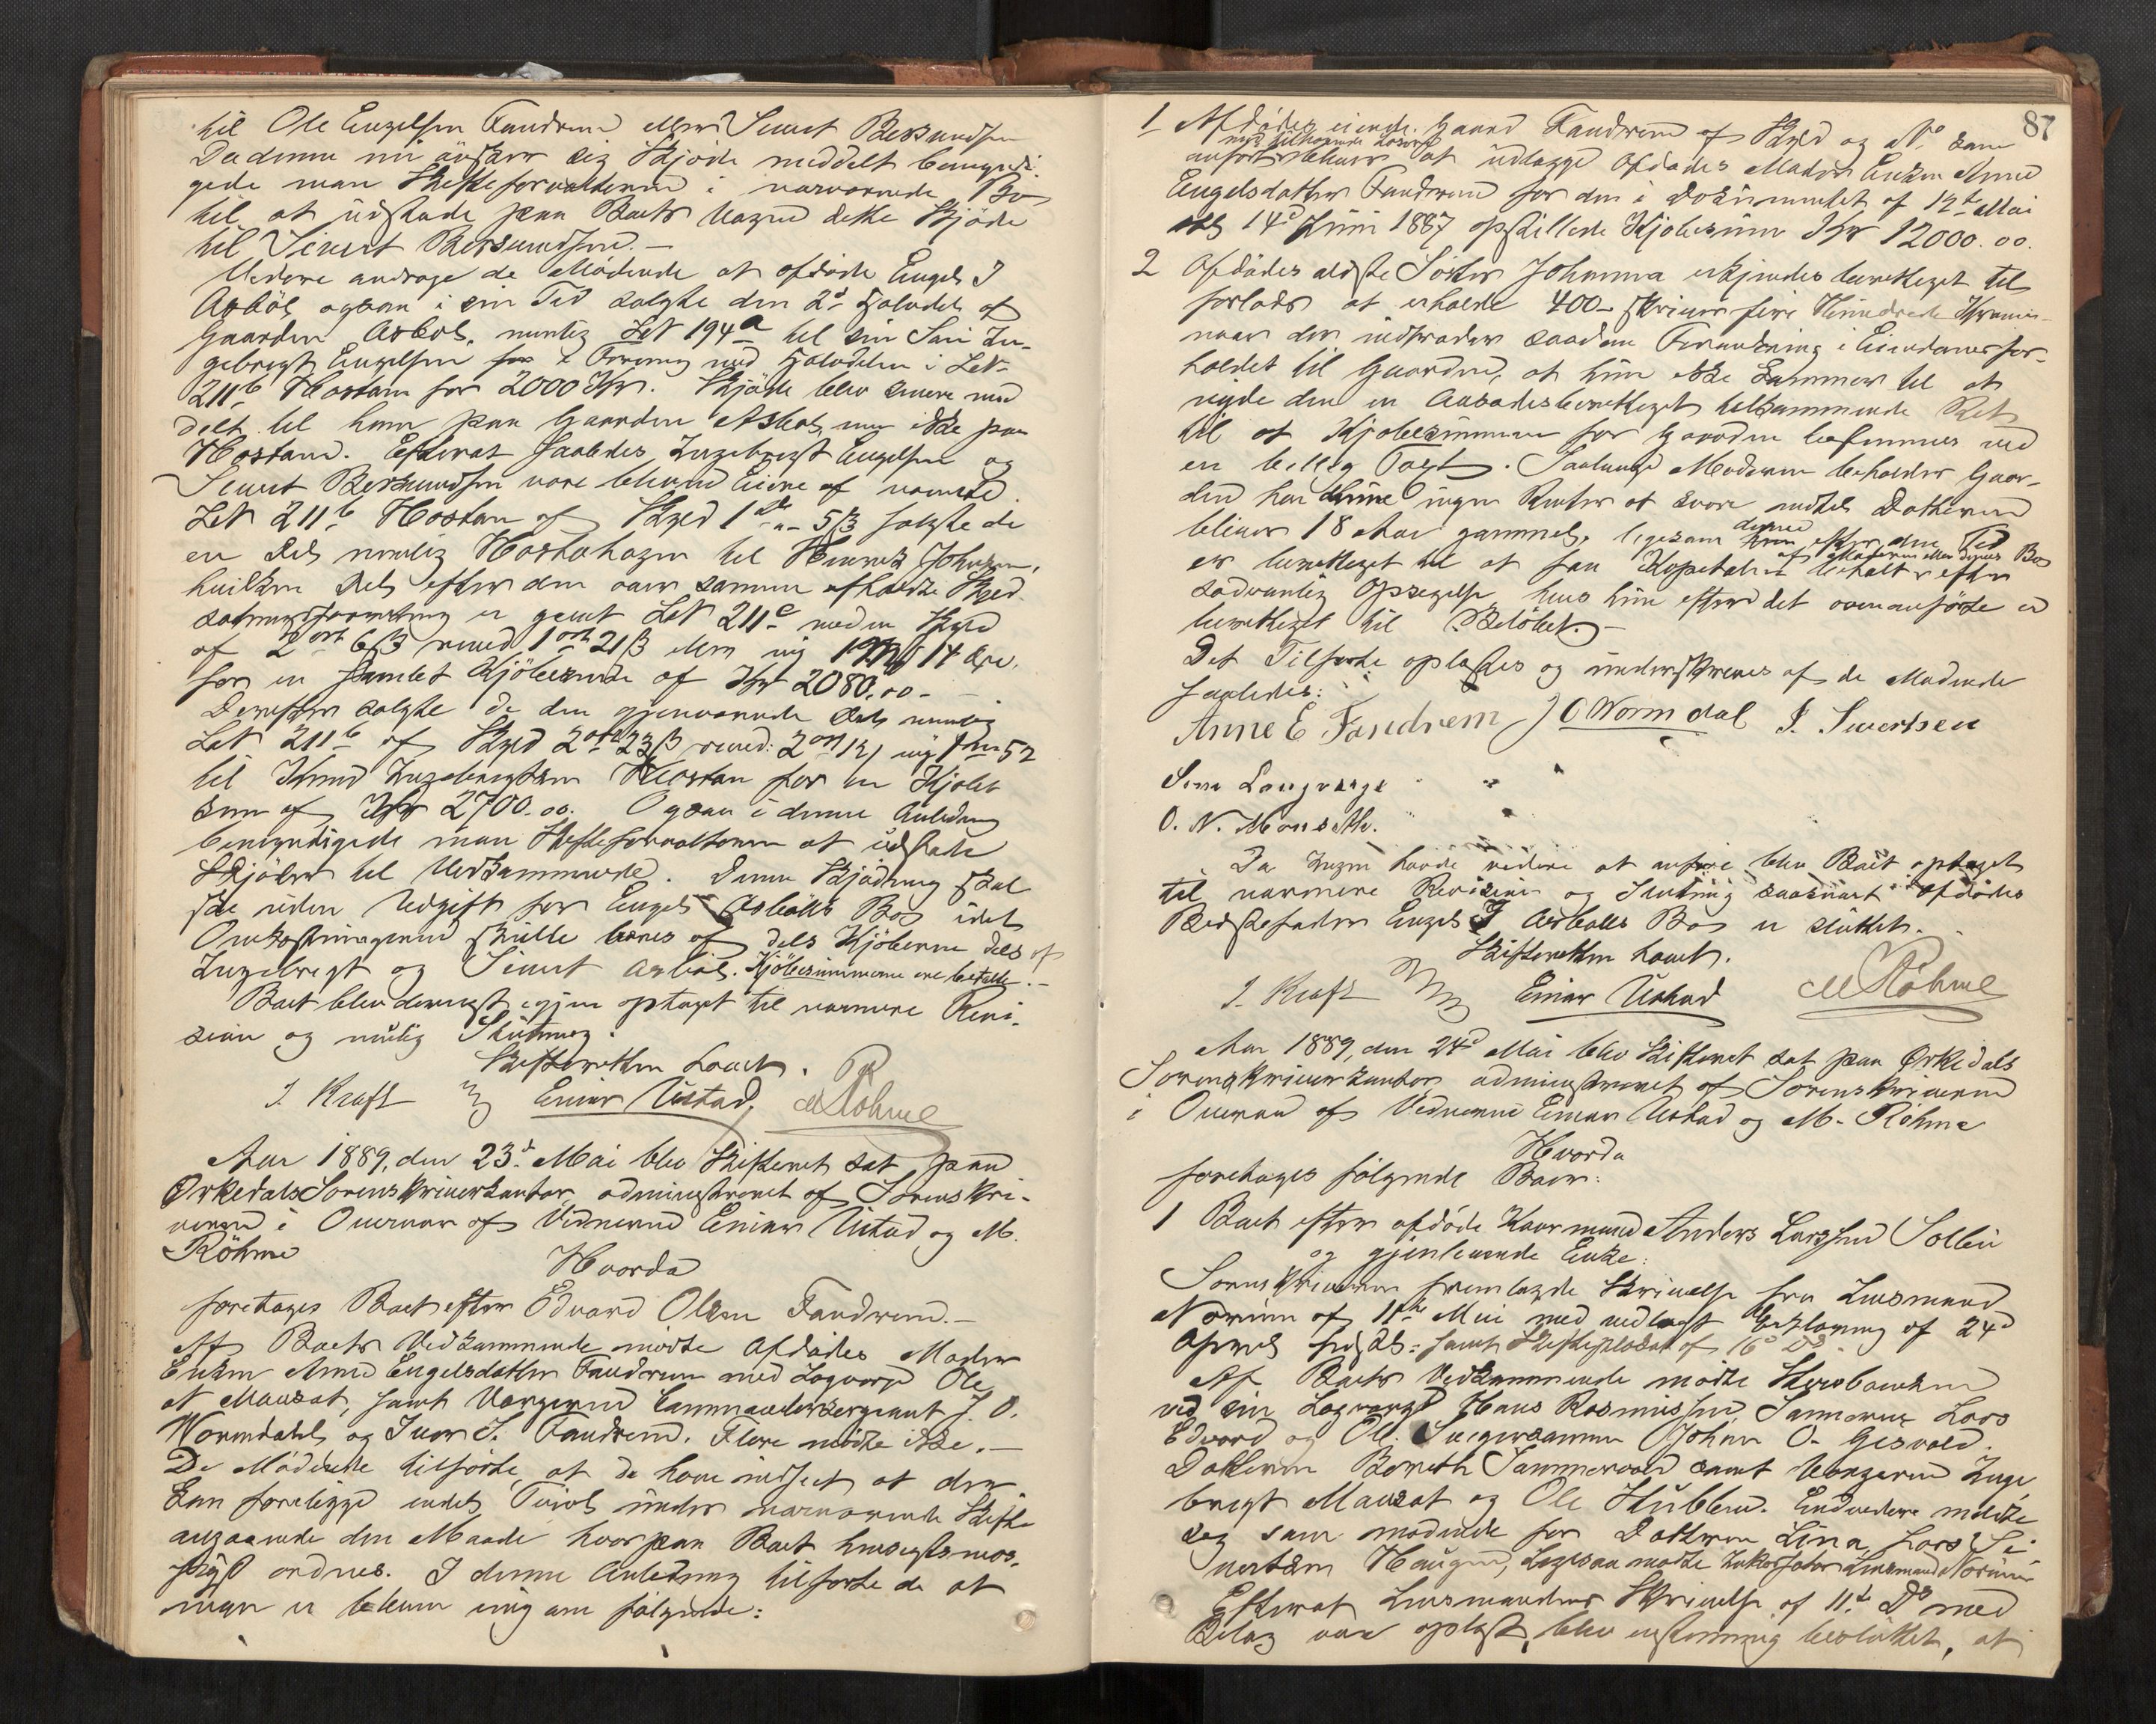 til Ole Engelsen Fandrem eller Sivert Bersundsen
Da denne nu ønsker sig Skjøde meddelt bemyndi-
gede man Skifteforvalteren i nærværende Bo
til at udstede paa Boets Vegne dette Skjøde
til Sivert Bersvendsen.-
Videre androge de Mødende at afdøde Engel I
Asbøl ogsaa i sin Tid solgte den 2d Halvdel af
Gaarden Asbøl, nemlig LN 194a til sin Søn In-
gebrigt Engelsen i Forening med Halvdelen i LN
211b Hostan for 2000 Kr. Skjøde blev senere med
delt til ham paa Gaarden Asbøl, men ikke paa
Hostand. Efterat saaledes Ingebrigt Engelsen og
Sivert Bersvendsen vare blevne Eiere af nævnte
LN 211b Hostan af Skyld 1 " 5 ß solgte de
en Del nemlig Hostahagen til Henrik Johnsen,
hvilken Del efter den over samme afholdte Skyld
satningsforretning er givet LN 211c med en Skyld
af 2 ort 6 ß reved. 1 ort 21 ß eller ny 14 Øre,
for en samlet Kjøbesum af Kr 2080.00-
Derefter solgte de den gjenværende Del nemlig
LN 211b af Skyld 2 ort 23 ß reved: 2 ort 12 ny 1 52
til Knud Ingebrigtsen Hostan for en Kjøbe
sum af Kr 2700.00. Ogsaa i denne Anledning
bemyndigede man Skifteforvalteren at udstede
Skjøder til Vedkommende. Denne Skjødning skal
ske uden Udgift for Engel Asbølls Bo idet
Omkostningerne skulle bæres af dels Kjøberne dels af
Ingebrigt og Sivert Asbøl. Kjøbesummerne ere betalte.-
Boet blev dernæst igjen optaget til nærmere Revi-
sion og mulig Slutning.
Skifteretten hævet.
I. Kraft Einar Ustad, M Röhme
Aar 1889, den 23d Mai blev Skifteret sat paa
Ørkedals Sorenskriverkontor, administreret af Sorenskri-
veren i Overvær af Vidnerne Einar Ustad og M.
Röhme
Hvorda
foretoges Boet efter Edvard Olsen Fandrem.-
Af Boets Vedkommende mødte Afdødes Moder
Enken Anne Engelsdatter Fandrem med Lagværge Ole
N Monsæt, samt Værgerne Commandersergeant J. O.
Wormdahl og Iver S. Fandrem. Flere mødte ikke.-
De Mødende tilførte, at de have indseet at der
kan foreligge endel Tvivl under nærværende Skifte
angaaende den Maade hvorpaa Boet hensigtsmæs-
sigst ordnes. I denne Anledning tilførte de at
man er bleven enig om følgende:
87
1 Afdødes eiende Gaard Fandrem af Skyld og No som
med tilhørende Løsøre
anført bliver at udlægge Afdødes Moder Enken Anne
Engelsdatter Fandrem for den i Dokumentet af 12te Mai
14d Juni 1887 opstillede Kjøbesum Kr 12000.00.
2 Afdødes ældste Søster Johanna erkjendes berettiget til
forlods at erholde 400- skriver fire Hundrede Kroner
naar der indtræder saadan Forandring i Eiendomsfor-
holdet til Gaarden, at hun ikke kommer til at
nyde den en Aasædesberettiget tilkommende Ret
til at Kjøbesummen for Gaarden bestemmes ved
en billig Taxt. Saalænge Moderen beholder Gaar-
den har denne ingen Renter at svare indtil Datteren
bliver 18 Aar gammel, ligesom denne efter den Tid
af Moderen eller dennes Bo
er berettiget til at faa Kapitalen betalt efter
sædvanlig Opsigelse, hvis hun efter det ovenanførte er
berettiget til Beløbet.-
Det Tilførte oplæstes og underskreves af de Mødende
saaledes:
Anne E Fandrem J O Wormdal I. Sivertsen
Sivert Langvaage
O. N. Monseth.
Da Ingen havde videre at anføre blev Boet optaget
til nærmere Revision og Slutning saasnart Afdødes
Bedstefader Engel I Asbølls Bo er sluttet.
Skifteretten hævet.
I. Kraft Einar Ustad M Röhme
Aar 1889, den 24d Mai blev Skifteret sat paa Ørkedals
Sorenskriverkontor, administreret af Sorenskriveren
i Overvær af Vidnerne Einar Ustad og M. Röhme
Hvorda
foretoges følgende Boer:
1 Boet efter afdøde Kaarmand Anders Larssen Sollien
og gjenlevende Enke:
Sorenskriveren fremlagde Skrivelse fra Lensmand
Norum af 11te Mai med vedlagt Erklæring af 24d
April sidstl: samt Skifteplakat af 16d Ds.
Af Boets Vedkommende mødte Sterbøenken
ved sin Lagværge Hans Rasmussen, Sønnerne Lars
Edvard og Ole. Svigersønnen Johan O. Gisvold.
Datteren Bereth Sammervold samt Værgerne Inge-
brigt Monsæt og Ole Stubben. Endvidere meldte
sig som mødende for Datteren Lina, Lars Si-
vertsen Haugen, Ligesaa mødte Inkassator Lensmand Norum
Efterat Lensmandens Skrivelse af 11d Ds med
Bilag var oplæst, blev enstemmig besluttet, at